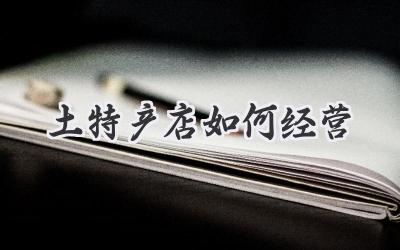 土特产店如何经营